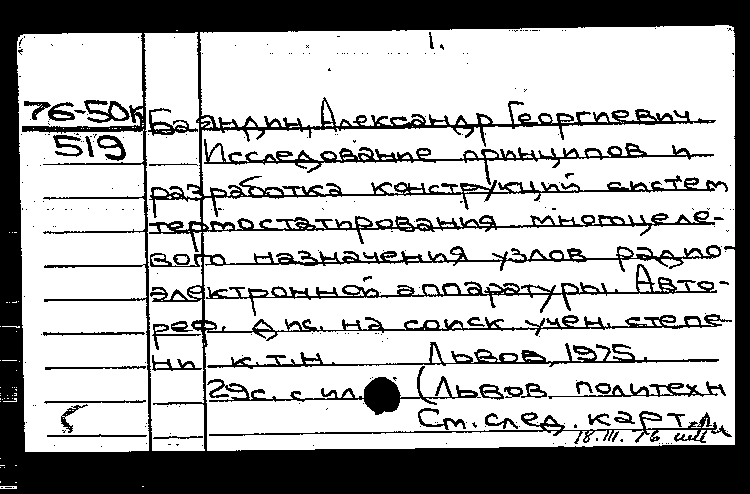 1.
76-50к
519
Баяндин, Александр Георгиевич.
Исследование принципов и
разработка конструкций систем
термостатирования многоцеле-
вого назначения узлов радио-
электронной аппаратуры. Авто-
реф. дис. на соиск. учен. степе-
ни к.т.н. Львов, 1975.
29с. с ил. (Львов. политехн
См. след. карт.
18.III.76